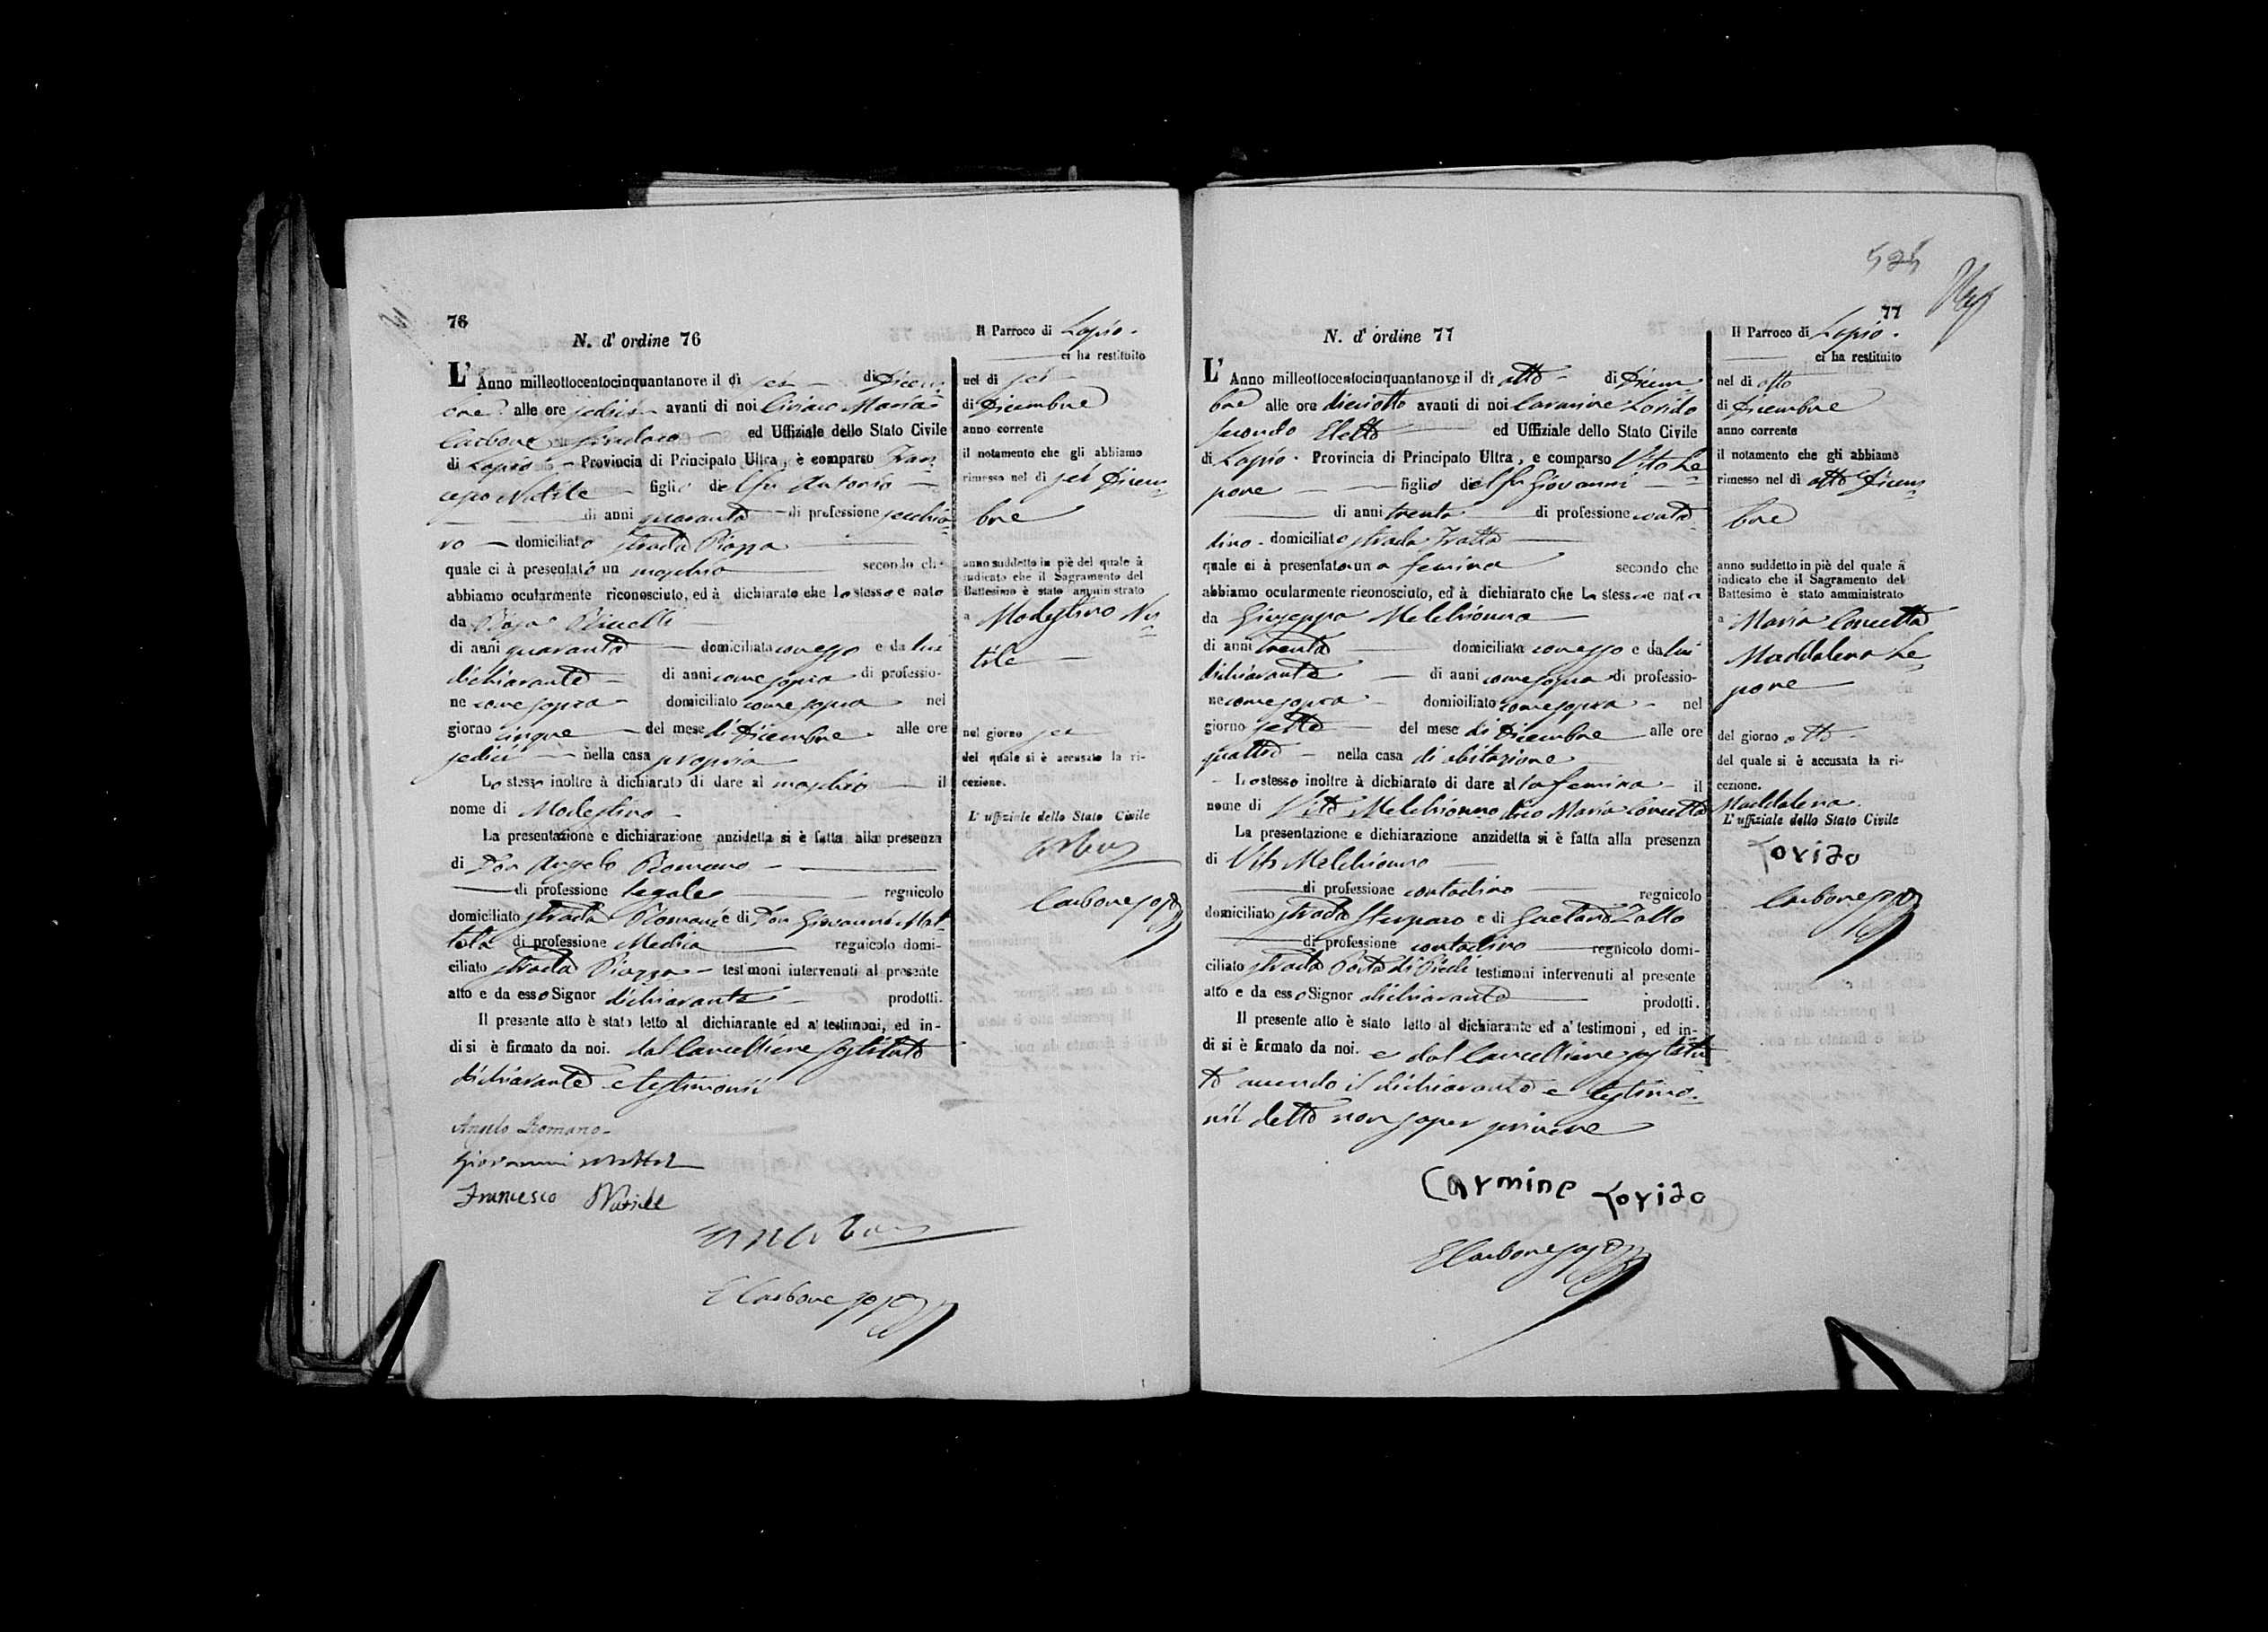 76
N. d' ordine 76
L' Anno millеottocentocinquantanove il dì sei di Dicem
bre alle ore sedici avanti di noi Ciriaco Maria
Carbone Sindaco ed Uffiziale dello Stato Civile
di Lapio Provincia di Principato Ultra, è comparso Fran
cesco Nutile figlio del fu Antonio
di anni quaranta di professione
domiciliato strada Piazza
quale ci à presentato un maschio secondo che
abbiamo ocularmente riconosciuto, ed à dichiarato che lo stesso e nato
da
di anni quaranta domiciliata con esso e da lui
dichiarante di anni come sopra di professio-
ne come sopra domiciliato come sopra nel
giorno cinque del mese di Dicembre alle ore
sedici nella casa propria
Lo stesso inoltre à dichiarato di dare al maschio il
nome di Modestino
La presentazione e dichiarazione anzidetta si è fatta alla presenza
di Don Angelo Romano
di professione legale regnicolo
domiciliato strada Romani e di Don Giovanni Mat
tola di professione Medico regnicolo domi-
ciliato strada Piazza testimoni intervenuti al presente
atto e da esso Signor dichiarante prodotti.
Il presente atto è stato letto al dichiarante ed a' testimoni, ed in-
di si è firmato da noi. dal Cancelliere sostituto
dichiarante e testimonii
Angelo Romano
Giovanni Mattola
Francesco Nutile
E Carbone
Il Parroco di Lapio.
ci ha restituito
nel dì sei
di Dicembre
anno corrente
il notamento che gli abbiamo
rimesso nel dì sei Dicem
bre
anno suddetto in piè del quale à
indicato che il Sagramento del
Battesimo è stato amministrato
a Modestino Nu
tile
nel giorno sei
del quale si è accusato la ri-
cezione.
L' uffiziale dello Stato Civile
Carbone
525
77
N. d' ordine 77
L' Anno milleottocentocinquantanove il dì otto di Dicem
bre alle ore dieciotto avanti di noi Carmine Lorido
secondo Eletto ed Uffiziale dello Stato Civile
di Lapio. Provincia di Principato Ultra, e comparso Vito Le
pore figlio del fu Giovanni
di anni trenta di professione conta
dino. domiciliato strada Tratta
quale ci à presentato una femina secondo che
abbiamo ocularmente riconosciuto, ed à dichiarato che La stessa e nata
da Giuseppa Melchionna
di anni trenta domiciliata con esso e da lui
dichiarante di anni come sopra di professio-
ne come sopra domiciliato come sopra nel
giorno sette del mese di Dicembre alle ore
quattro nella casa di abitazione
Lo stesso inoltre à dichiarato di dare alla femina il
nome di Vito Melchionno dico Maria Concetta Maddalena.
La presentazione e dichiarazione anzidetta si è fatta alla presenza
di Vito Melchionno
di professione contadino regnicolo
domiciliato strada e di Gaetano Zollo
di professione contadino regnicolo domi-
ciliato strada Porta di Piedi testimoni intervenuti al presente
atto e da esso Signor dichiarante prodotti.
Il presente atto è stato letto al dichiarante ed a' testimoni, ed in-
di si è firmato da noi. e dal Cancelliere sostitu
to avendo il dichiarante e testimo-
nii detto non saper scrivere
Carmine Lorido
E Carbone
Il Parroco di Lapio.
ci ha restituito
nel dì otto
di Dicembre
anno corrente
il notamento che gli abbiamo
rimesso nel dì otto Dicem
bre
anno suddetto in piè del quale à
indicato che il Sagramento del
Battesimo è stato amministrato
a Maria Concetta
Maddalena Le
pore
del giorno otto
del quale si è accusata la ri-
cezione.
L' uffiziale dello Stato Civile
Lorido
Carbone